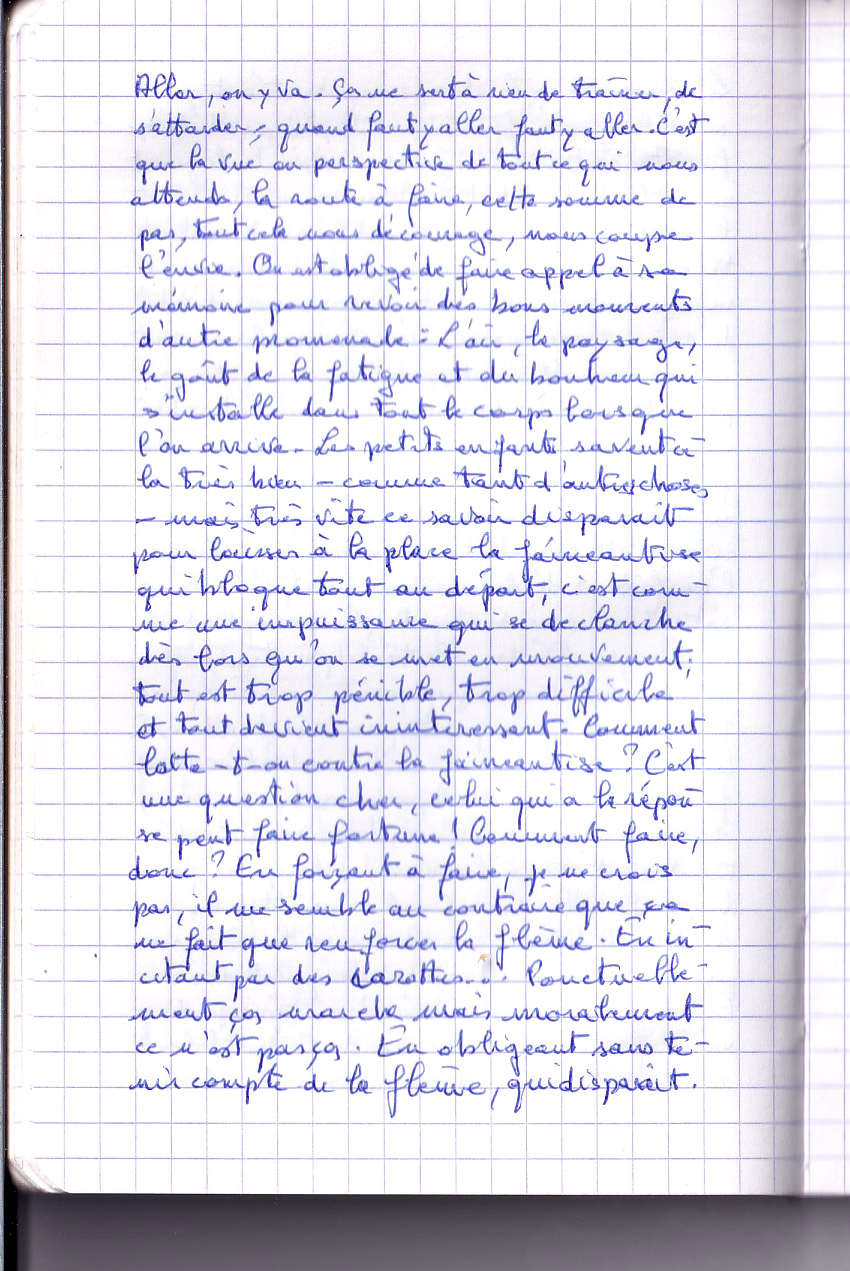 Aller, on y va. Ça ne sert à rien de traîner, de
s'attarder, quand faut y aller faut y aller. C'est
que la vue ou perspective de tout ce qui nous
attends, la route à faire, cette somme de
pas, tout cela nous décourage, nous coupe
l'envie. On est obligé de faire appel à sa
mémoire pour revoir des bons moments
d'autre promenade : L'air, le paysage,
le goût de la fatigue et du bonheur qui
s'installe dans tout le corps lorsque
l'on arrive. Les petits enfants savent ce-
la très bien – comme tant d'autres choses
– mais très vite ce savoir disparait
pour laisser à la place la fainéantise
qui bloque tout au départ, c'est com-
me une impuissance qui se declanche
dès lors qu'on se met en mouvement,
tout est trop pénible, trop difficile
et tout devient inintéressant. Comment
lutte-t-on contre la fainéantise ? C'est
une question cher, celui qui a la répon
se peut faire fortune ! Comment faire,
donc ? En forçant à faire, je ne crois
pas, il me semble au contraire que ça
ne fait que renforcer la flème. En in-
citant par des carottes... Ponctuelle-
ment ça marche mais moralement
ce n'est pas ça. En obligeant sans te-
nir compte de la flème, qui disparait.